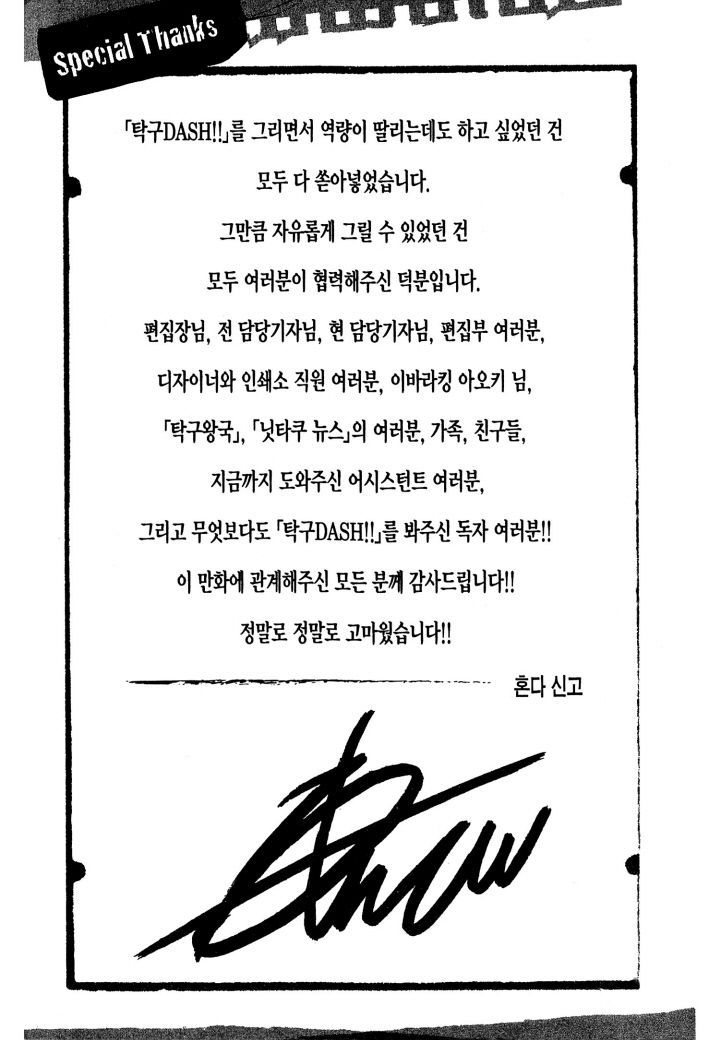 Special Thanks
「탁구DASH!!」를 그리면서 역량이 딸리는데도 하고 싶었던 건
모두 다 쏟아넣었습니다.
그만큼 자유롭게 그릴 수 있었던 건
모두 여러분이 협력해주신 덕분입니다.
편집장님, 전 담당기자님, 현 담당기자님, 편집부 여러분,
디자이너와 인쇄소 직원 여러분, 이바라킹 아오키 님,
「탁구왕국」, 「닛타쿠 뉴스」의 여러분, 가족, 친구들,
지금까지 도와주신 어시스턴트 여러분,
그리고 무엇보다도 「탁구DASH!!」를 봐주신 독자 여러분!!
이 만화에 관계해주신 모든 분께 감사드립니다!!
정말로 정말로 고마웠습니다!!
혼다 신고